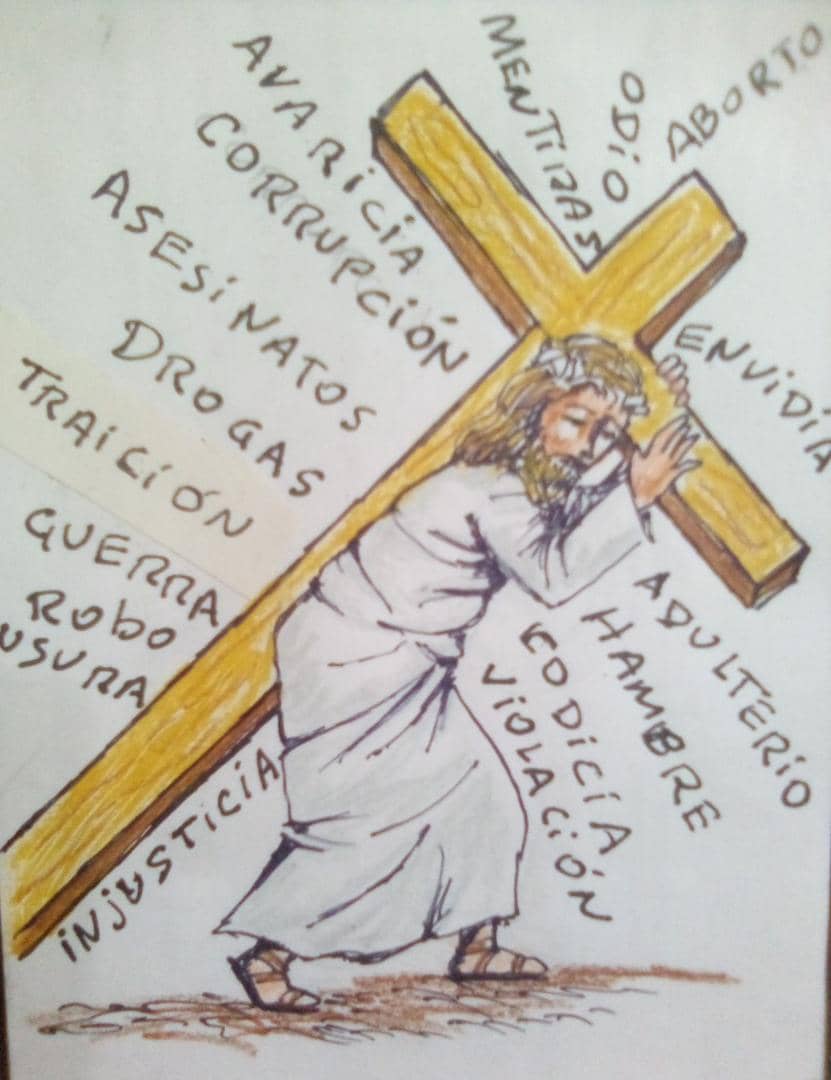 MENTIRAS
ODiO
ABORTO
AVARiCiA
CORRUPCiÓN
ASESiNATOS
DROGAS
TRAiCiÓN
GUERRA
RObO
USURA
iNjUSTiCiA
ENViDiA
ADULTERiO
HAMBRE
CODiCiA
ViOLACiÓN